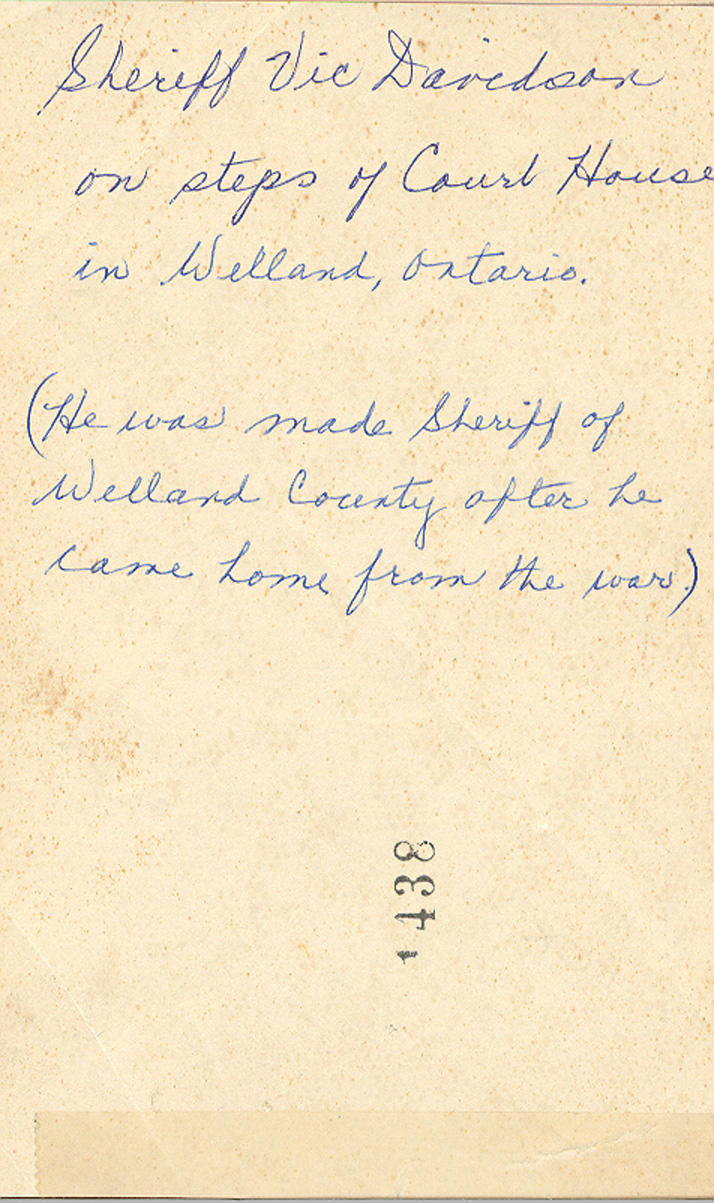 Sheriff Vic Davidson
on steps of Court House
in Welland, Ontario.
(He was made Sheriff of
Welland County after he
came home from the war.)
438